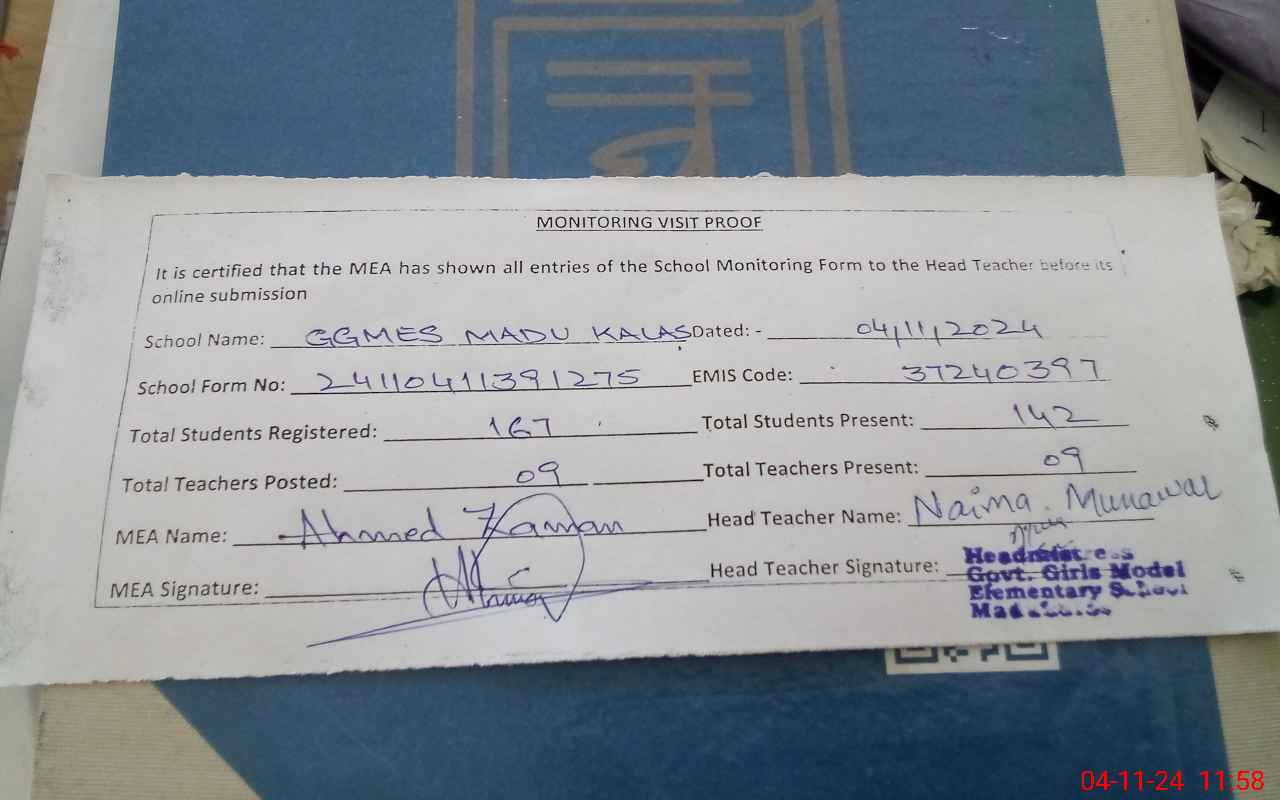 MONITORING VISIT PROOF
It is certified that the MEA has shown all entries of the School Monitoring Form to the Head Teacher before its
online submission
School Name: GGMES MADU KALAS Dated: - 04/11/2024
School Form No: 24110411391275 EMIS Code: 37240397
Total Students Registered: 167 Total Students Present: 142
Total Teachers Posted: 09 Total Teachers Present: 09
MEA Name: Ahmed Zaman Head Teacher Name: Naima Munawar
MEA Signature: Head Teacher Signature:
Headmistress
Govt. Girls Model
Elementary School
04-11-24 11:58